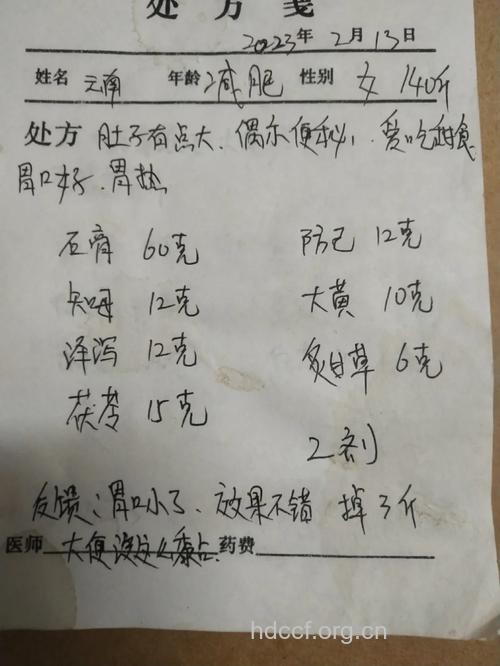 处方笺
2023年2月13日
姓名 云南 年龄 减肥 性别 女 140斤
处方 肚子有点大、偶尔便秘、爱吃甜食
胃口好、胃热
石膏 60克 防己 12克
知母 12克 大黄 10克
泽泻 12克 炙甘草 6克
茯苓 15克
2剂
反馈:胃口小了、效果不错 掉3斤
医师 大便没怎么 药费
hdccf.org.cn